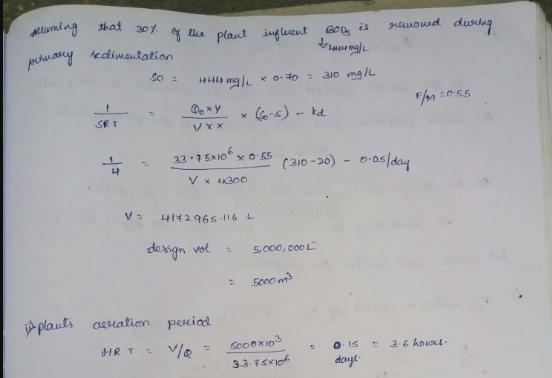 Assuming that 30% of the plant influent BOD5 is removed during
↳444mg/L
primary sedimentation
SO = 444 mg/L × 0.70 = 310 mg/L
F/M = 0.55
1/SRT = Qo × Y / V × X × (So-S) - kd
1/4 = 33.75×10⁶ × 0.55 / V × 4300 (310-20) - 0.05/day
V = 4172965.116 L
design vol = 5,000,000L
= 5000m³
plants aeration period
HRT = V/Q = 5000×10³ / 33.75×10⁶ = 0.15 days. = 3.6 hours.